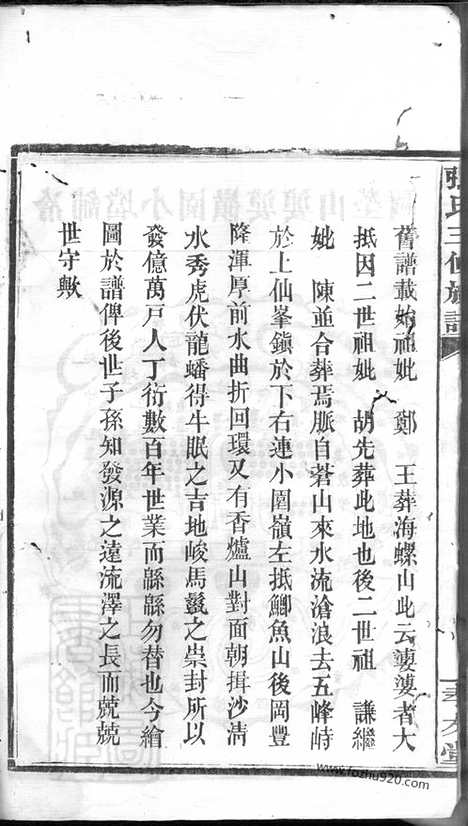 舊譜載始祖妣　鄭　王葬海螺山此云婆婆者大
抵因二世祖妣　胡先葬此地也後二世祖　謙繼
妣　陳並合葬焉脈自蒼山來水流滄浪去五峰峙
於上仙峯鎮於下右連小圍嶺左抵鯽魚山後岡豐
隆渾厚前水曲折回環又有香爐山對面朝揖沙清
水秀虎伏龍蟠得牛眠之吉地峻馬鬛之崇封所以
發億萬戸人丁衍數百年世業而緜緜勿替也今繪
圖於譜俾後世子孫知發源之遠流澤之長而兢兢
世守歟
張氏三修族譜
孝友堂
www.fozhu920.com